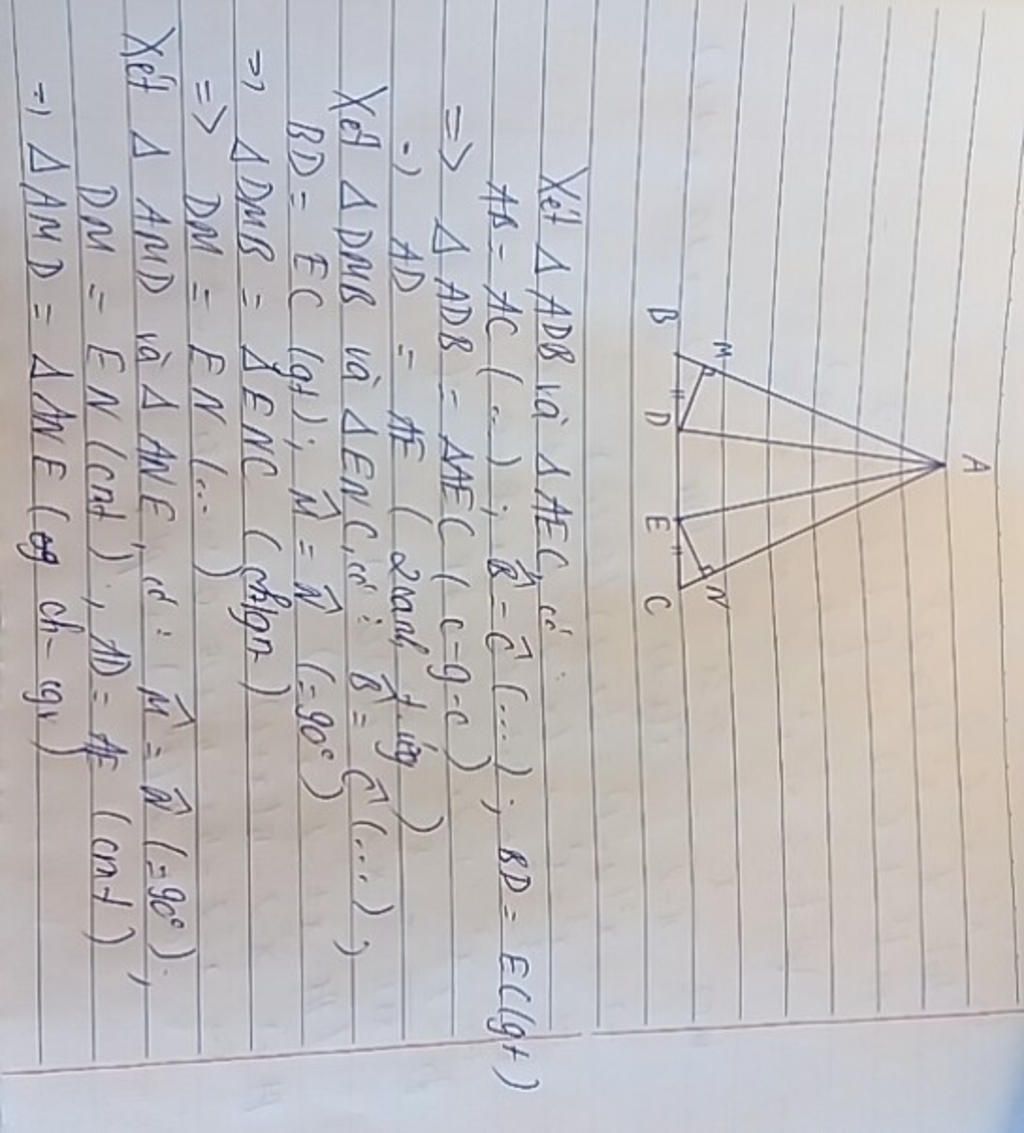 A
B M D E N C
Xét Δ ADB và Δ AEC, có :
AB = AC (...) ; B̂ = Ĉ (...) ; BD = EC (gt)
=> Δ ADB = Δ AEC ( c-g-c )
=> AD = AE ( 2 cạnh t. ứng )
Xét Δ DMB và Δ ENC, có : B̂ = Ĉ (...) ;
BD = EC (gt) ; M̂ = N̂ (=90°)
=> Δ DMB = Δ ENC ( ch-gn )
=> DM = EN (... )
Xét Δ AMD và Δ ANE, có : M̂ = N̂ (=90°) ;
DM = EN (cmt) ; AD = AE (cmt)
=> Δ AMD = Δ ANE ( ch - cgv )